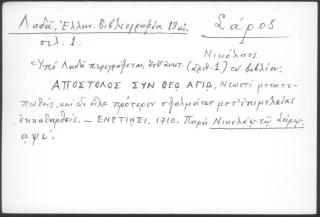 Λαδᾶ, Ἑλλην. Βιβλιογραφία 18 αἰ.
Σάρος
σελ. 1.
Νικόλαος
Ὑπὸ Λαδᾶ περιγράφεται, (ἀριθ. 1) τὸ βιβλίον:
ΑΠΟΣΤΟΛΟΣ ΣΥΝ ΘΕΩ ΑΓΙΩ, Νεωστὶ μετατυ-
πωθείς, καὶ ὧν εἶχε πρότερον σφαλμάτων μετ' ἐπιμελείας
ἐκκαθαρθείς. – ΕΝΕΤΙΗΣΙ. 1710. Παρὰ Νικολάῳ τῷ Σάρῳ.
αψι'.